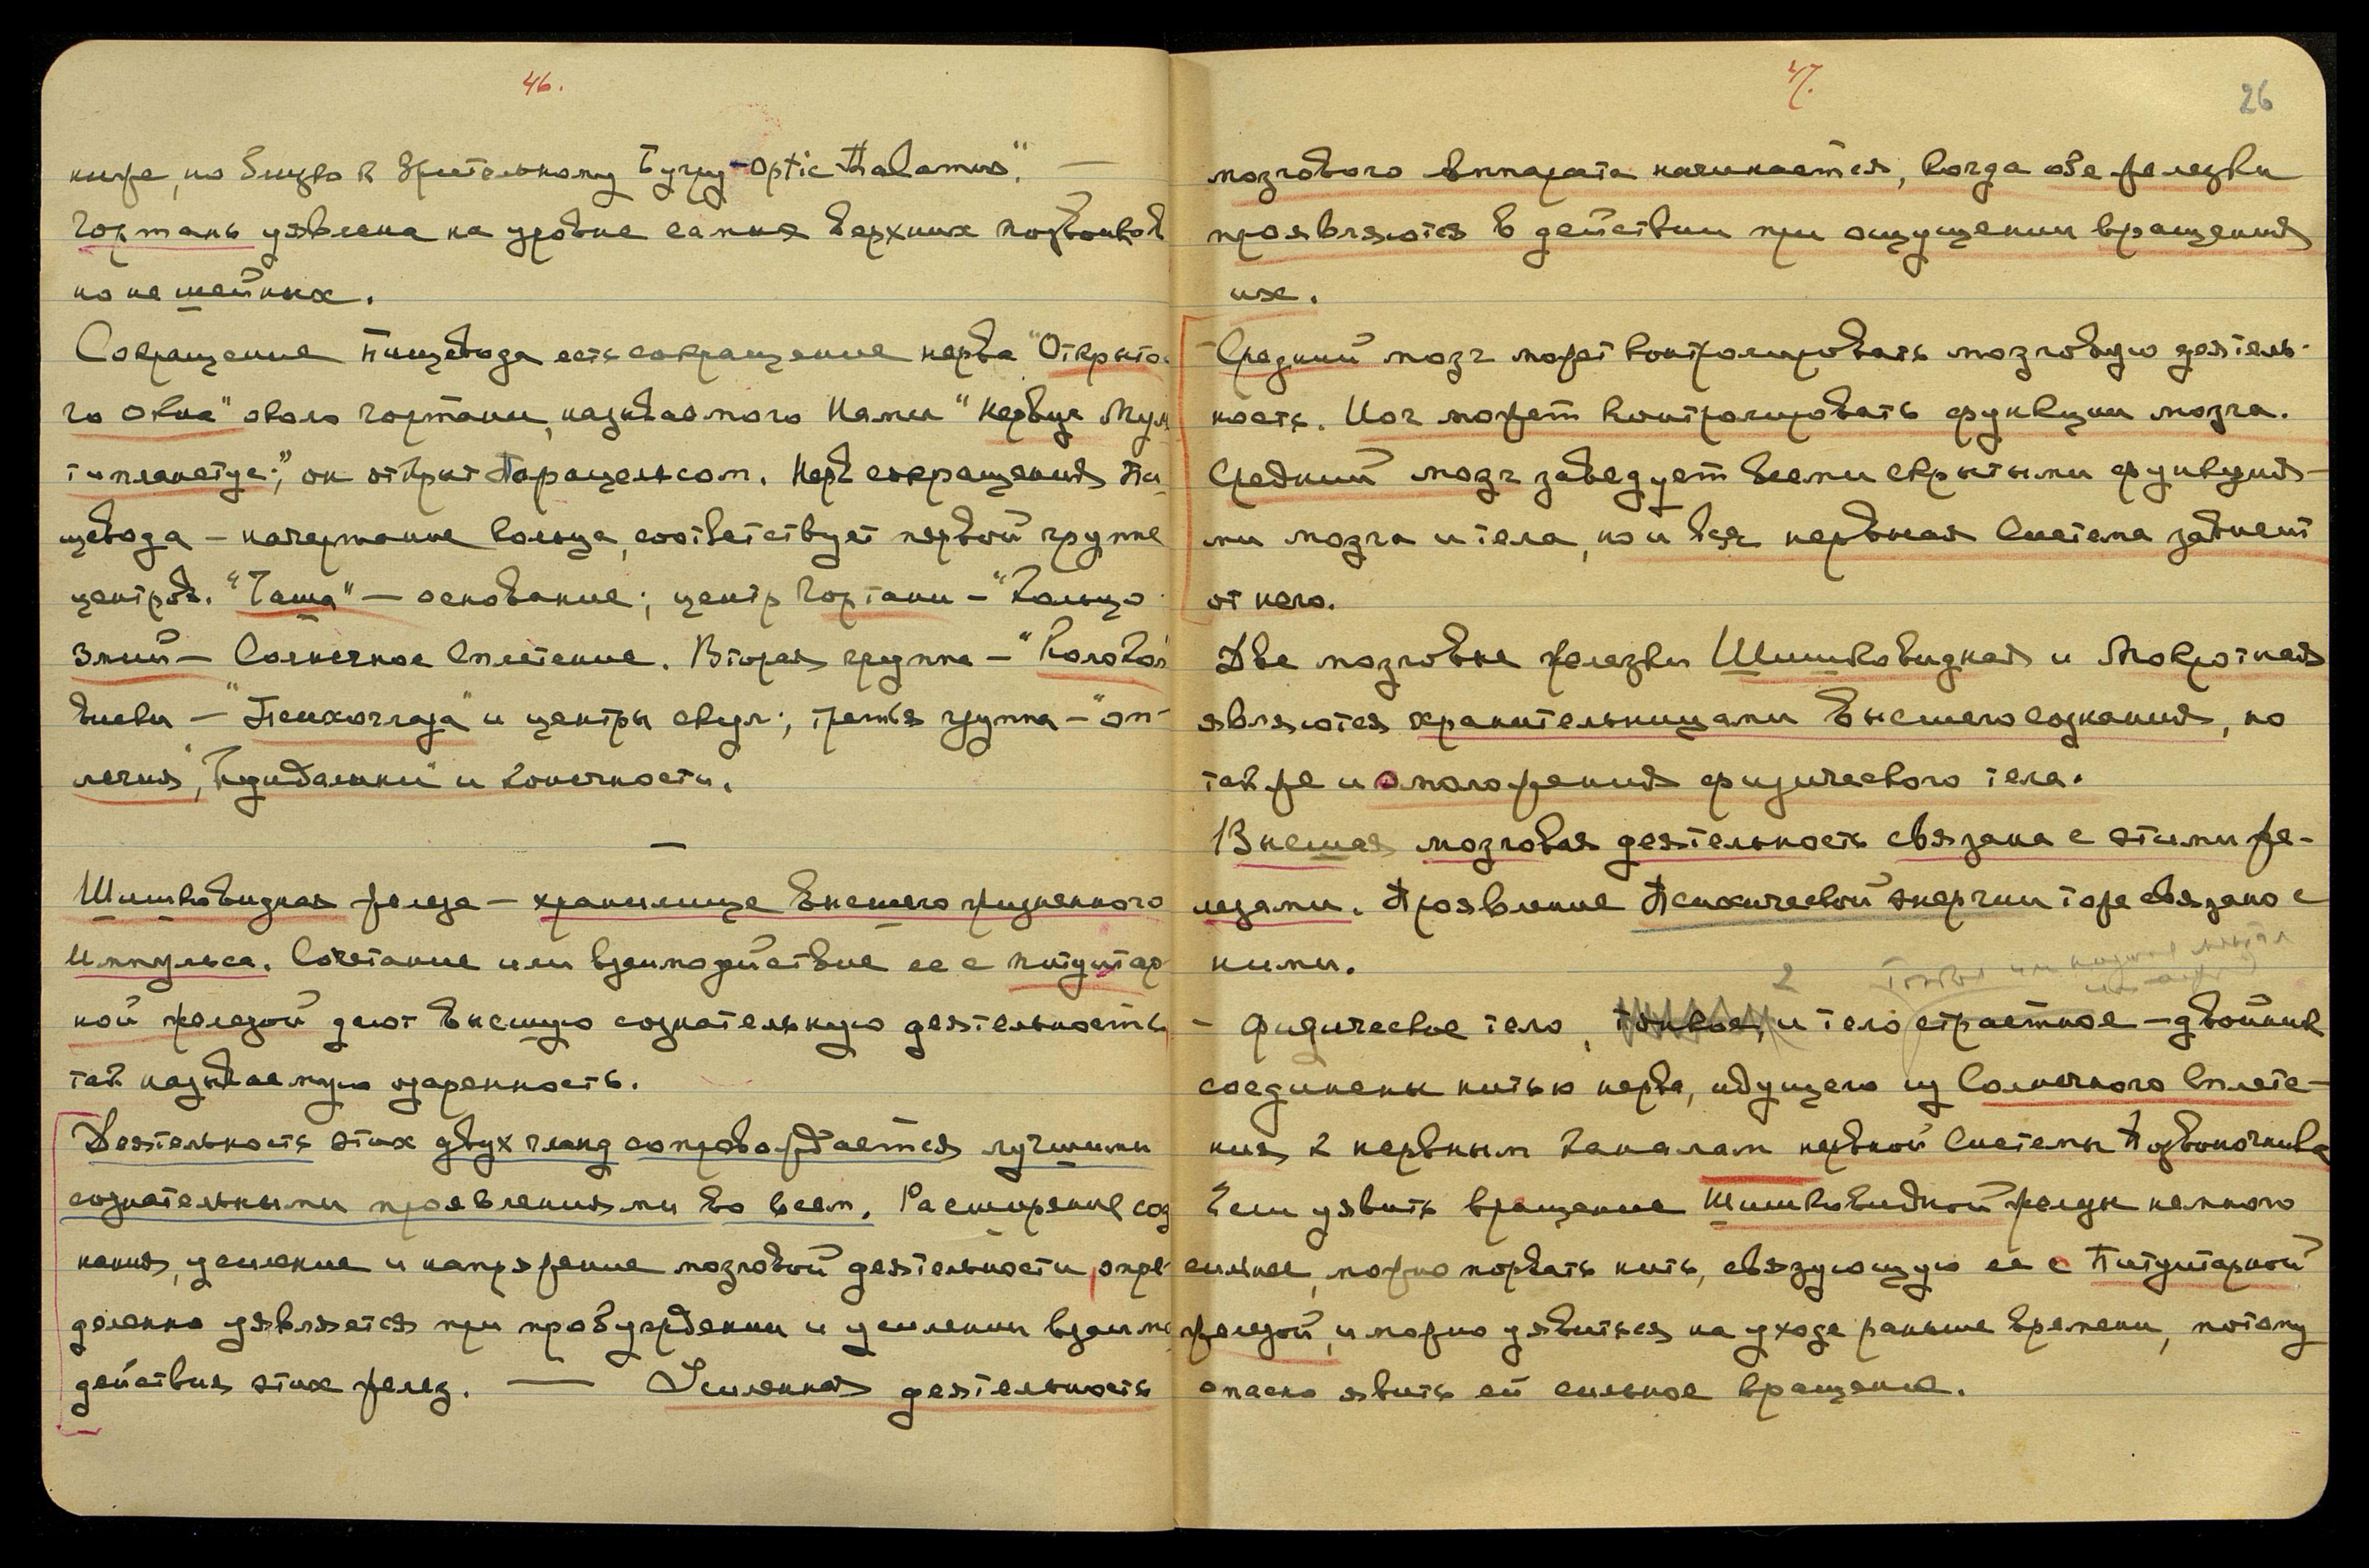 46.
ниже, но близко к Зрительному Бугру - Optic Thalamus". —
Гортань уявлена на уровне самых верхних позвонков
но не шейных.
Сокращение Пищевода есть сокращение нерва "Открыто-
го окна" около гортани, называемого Нами "Нервус Мул
типланетус"; он открыт Парацельсом. Нерв сокращения Пи-
щевода – начертание кольца, соответствует первой группе
центров. "Чаша" – основание; центр Гортани – "Кольцо
Змий – Солнечное Сплетение. Вторая группа – "Колоколь
"Психоглаза" и центры скул; третья группа – "оп-
лечия", Кундалини и конечности.
—
Шишковидная железа – хранилище высшего жизненного
Импульса. Сочетание или взаимодействие ее с питуитар
ной железой дают высшую сознательную деятельность,
так называемую озаренность.
Деятельность этих двух гланд сопровождается лучшими
сознательными проявлениями во всем. Расширение соз
нания, усиление и напряжение мозговой деятельности опре-
деленно уявляется при пробуждении и усилении взаимо
действия этих желез. — Усиленная деятельность
47.
26
мозгового аппарата начинается, когда обе железки
проявляются в действии при ощущении вращения
их.
Средний мозг может контролировать мозговую деятель-
ность. Йог может контролировать функции мозга.
Средний мозг заведует всеми скрытыми функция-
ми мозга и тела, но и вся нервная система зависит
от него.
Две мозговые железки Шишковидная и Мокротная
являются хранительницами высшего сознания, но
так же и омоложения физического тела.
Высшая мозговая деятельность связана с этими же-
лезами. Проявление Психической энергии тоже связано с
ними.
2
– Физическое тело, тонкое, и тело страстное – двойник
соединены нитью нерва, идущего из Солнечного Сплете-
ния к нервным каналам нервной системы Позвоночника
Если уявить вращение Шишковидной железы немного
сильнее, можно порвать нить, связующую её с Питуитарной
железой, и можно уявиться на уходе раньше времени, потому
опасно явить ей сильное вращение.